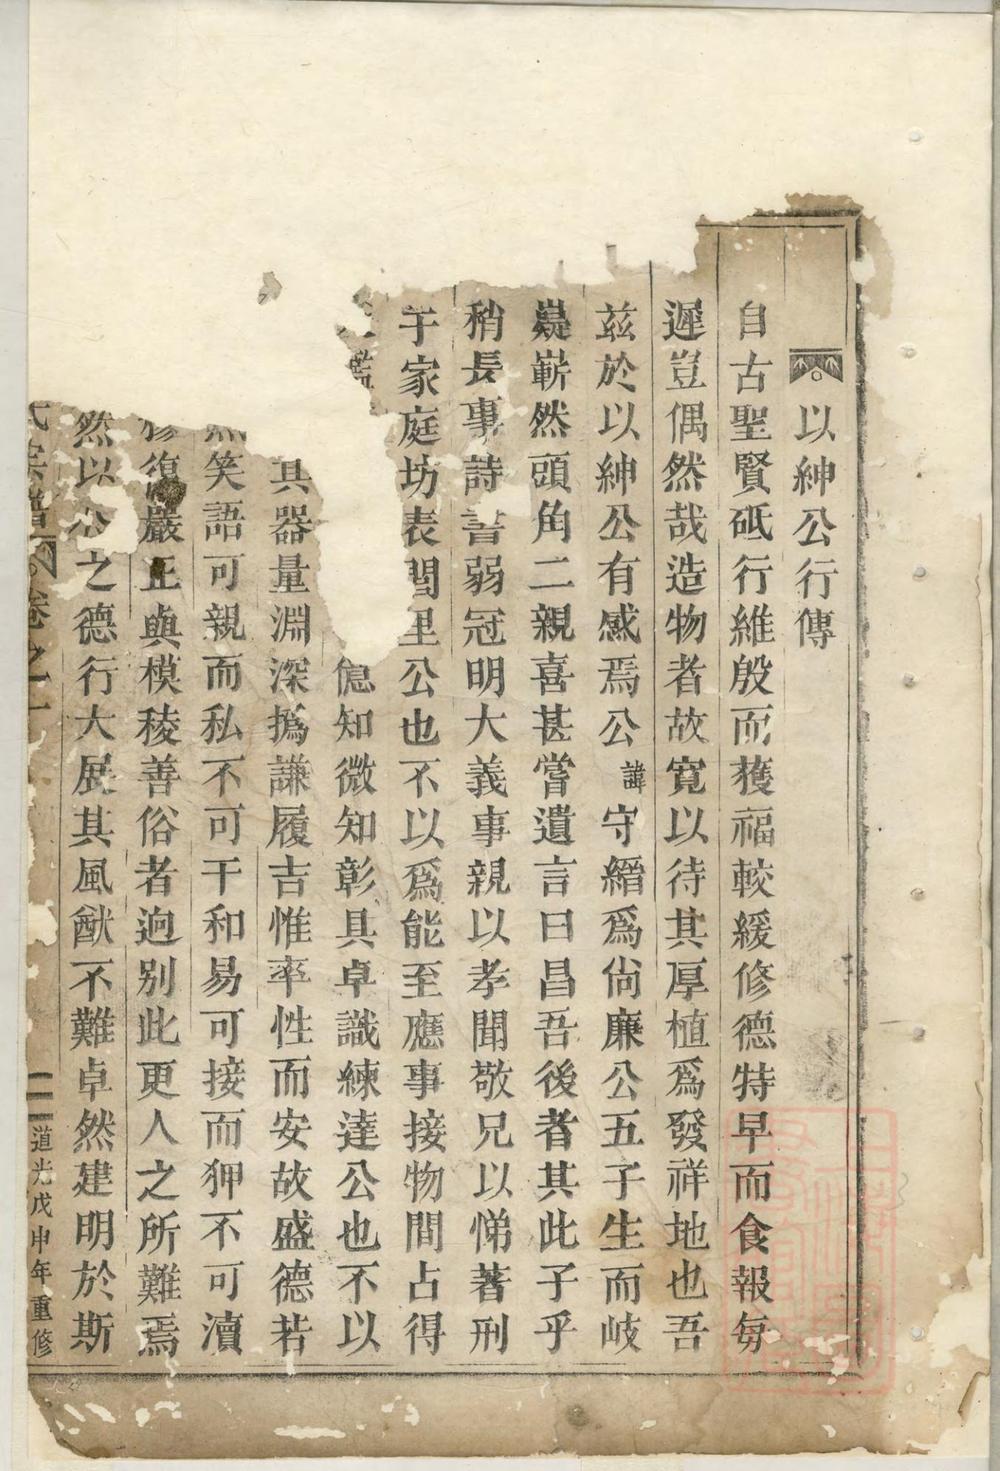 以紳公行傳
自古聖賢砥行維殷而獲福較緩修德特早而食報每
遲豈偶然哉造物者故寬以待其厚植爲發祥地也吾
茲於以紳公有感焉公諱守縉爲尙廉公五子生而岐
嶷嶄然頭角二親喜甚嘗遺言曰昌吾後者其此子乎
稍長事詩書弱冠明大義事親以孝聞敬兄以悌著刑
于家庭坊表閭里公也不以爲能至應事接物間占得
億知微知彰具卓識練達公也不以
其器量淵深撝謙履吉惟率性而安故盛德若
笑語可親而私不可干和易可接而狎不可瀆
復嚴正與模稜善俗者逈别此更人之所難焉
然以公之德行大展其風猷不難卓然建明於斯
氏宗譜 卷之一 二 道光戊申年重修